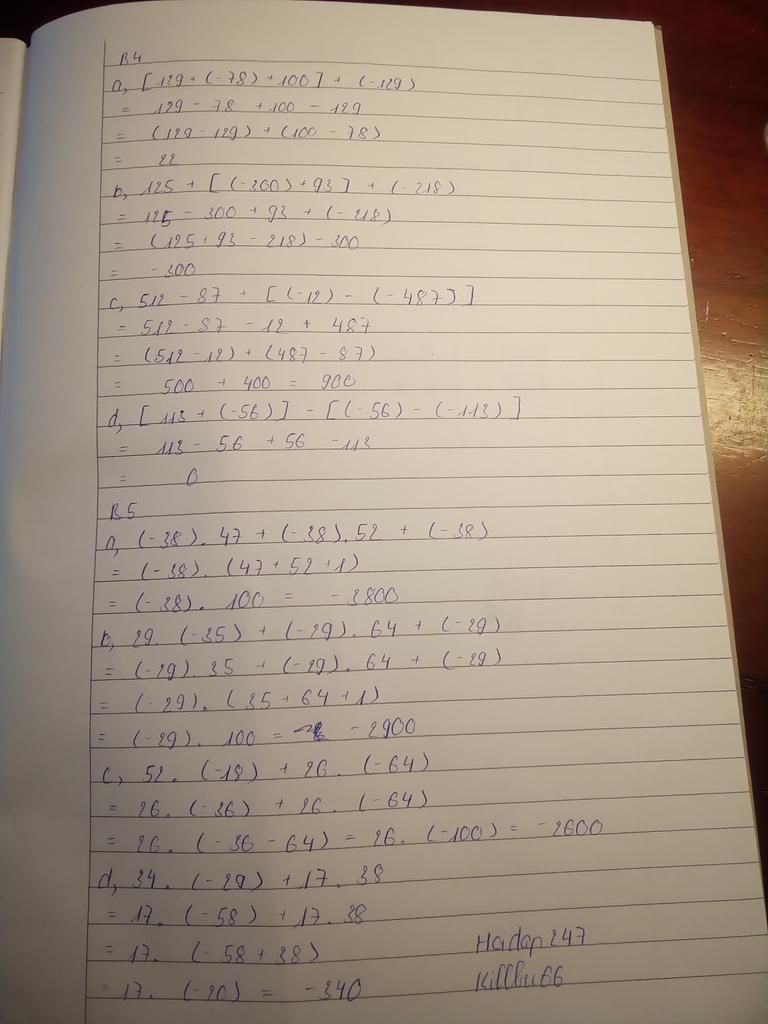 B4
a, [129 + (-78) + 100] + (-129)
= 129 - 78 + 100 - 129
= (129 - 129) + (100 - 78)
= 22
b, 125 + [(-300) + 93] + (-218)
= 125 - 300 + 93 + (-218)
= (125 + 93 - 218) - 300
= -300
c, 512 - 87 + [(-12) - (-487)]
= 512 - 87 - 12 + 487
= (512 - 12) + (487 - 87)
= 500 + 400 = 900
d, [113 + (-56)] - [(-56) - (-113)]
= 113 - 56 + 56 - 113
= 0
B5
a, (-38). 47 + (-38). 52 + (-38)
= (-38). (47 + 52 + 1)
= (-38). 100 = -3800
b, 29. (-35) + (-29). 64 + (-29)
= (-29). 35 + (-29). 64 + (-29)
= (-29). (35 + 64 + 1)
= (-29). 100 = -2900
c, 52. (-18) + 26. (-64)
= 26. (-36) + 26. (-64)
= 26. (-36 - 64) = 26. (-100) = -2600
d, 34. (-29) + 17. 38
= 17. (-58) + 17. 38
= 17. (-58 + 38)
= 17. (-20) = -340
Hoidap247
Killbu66